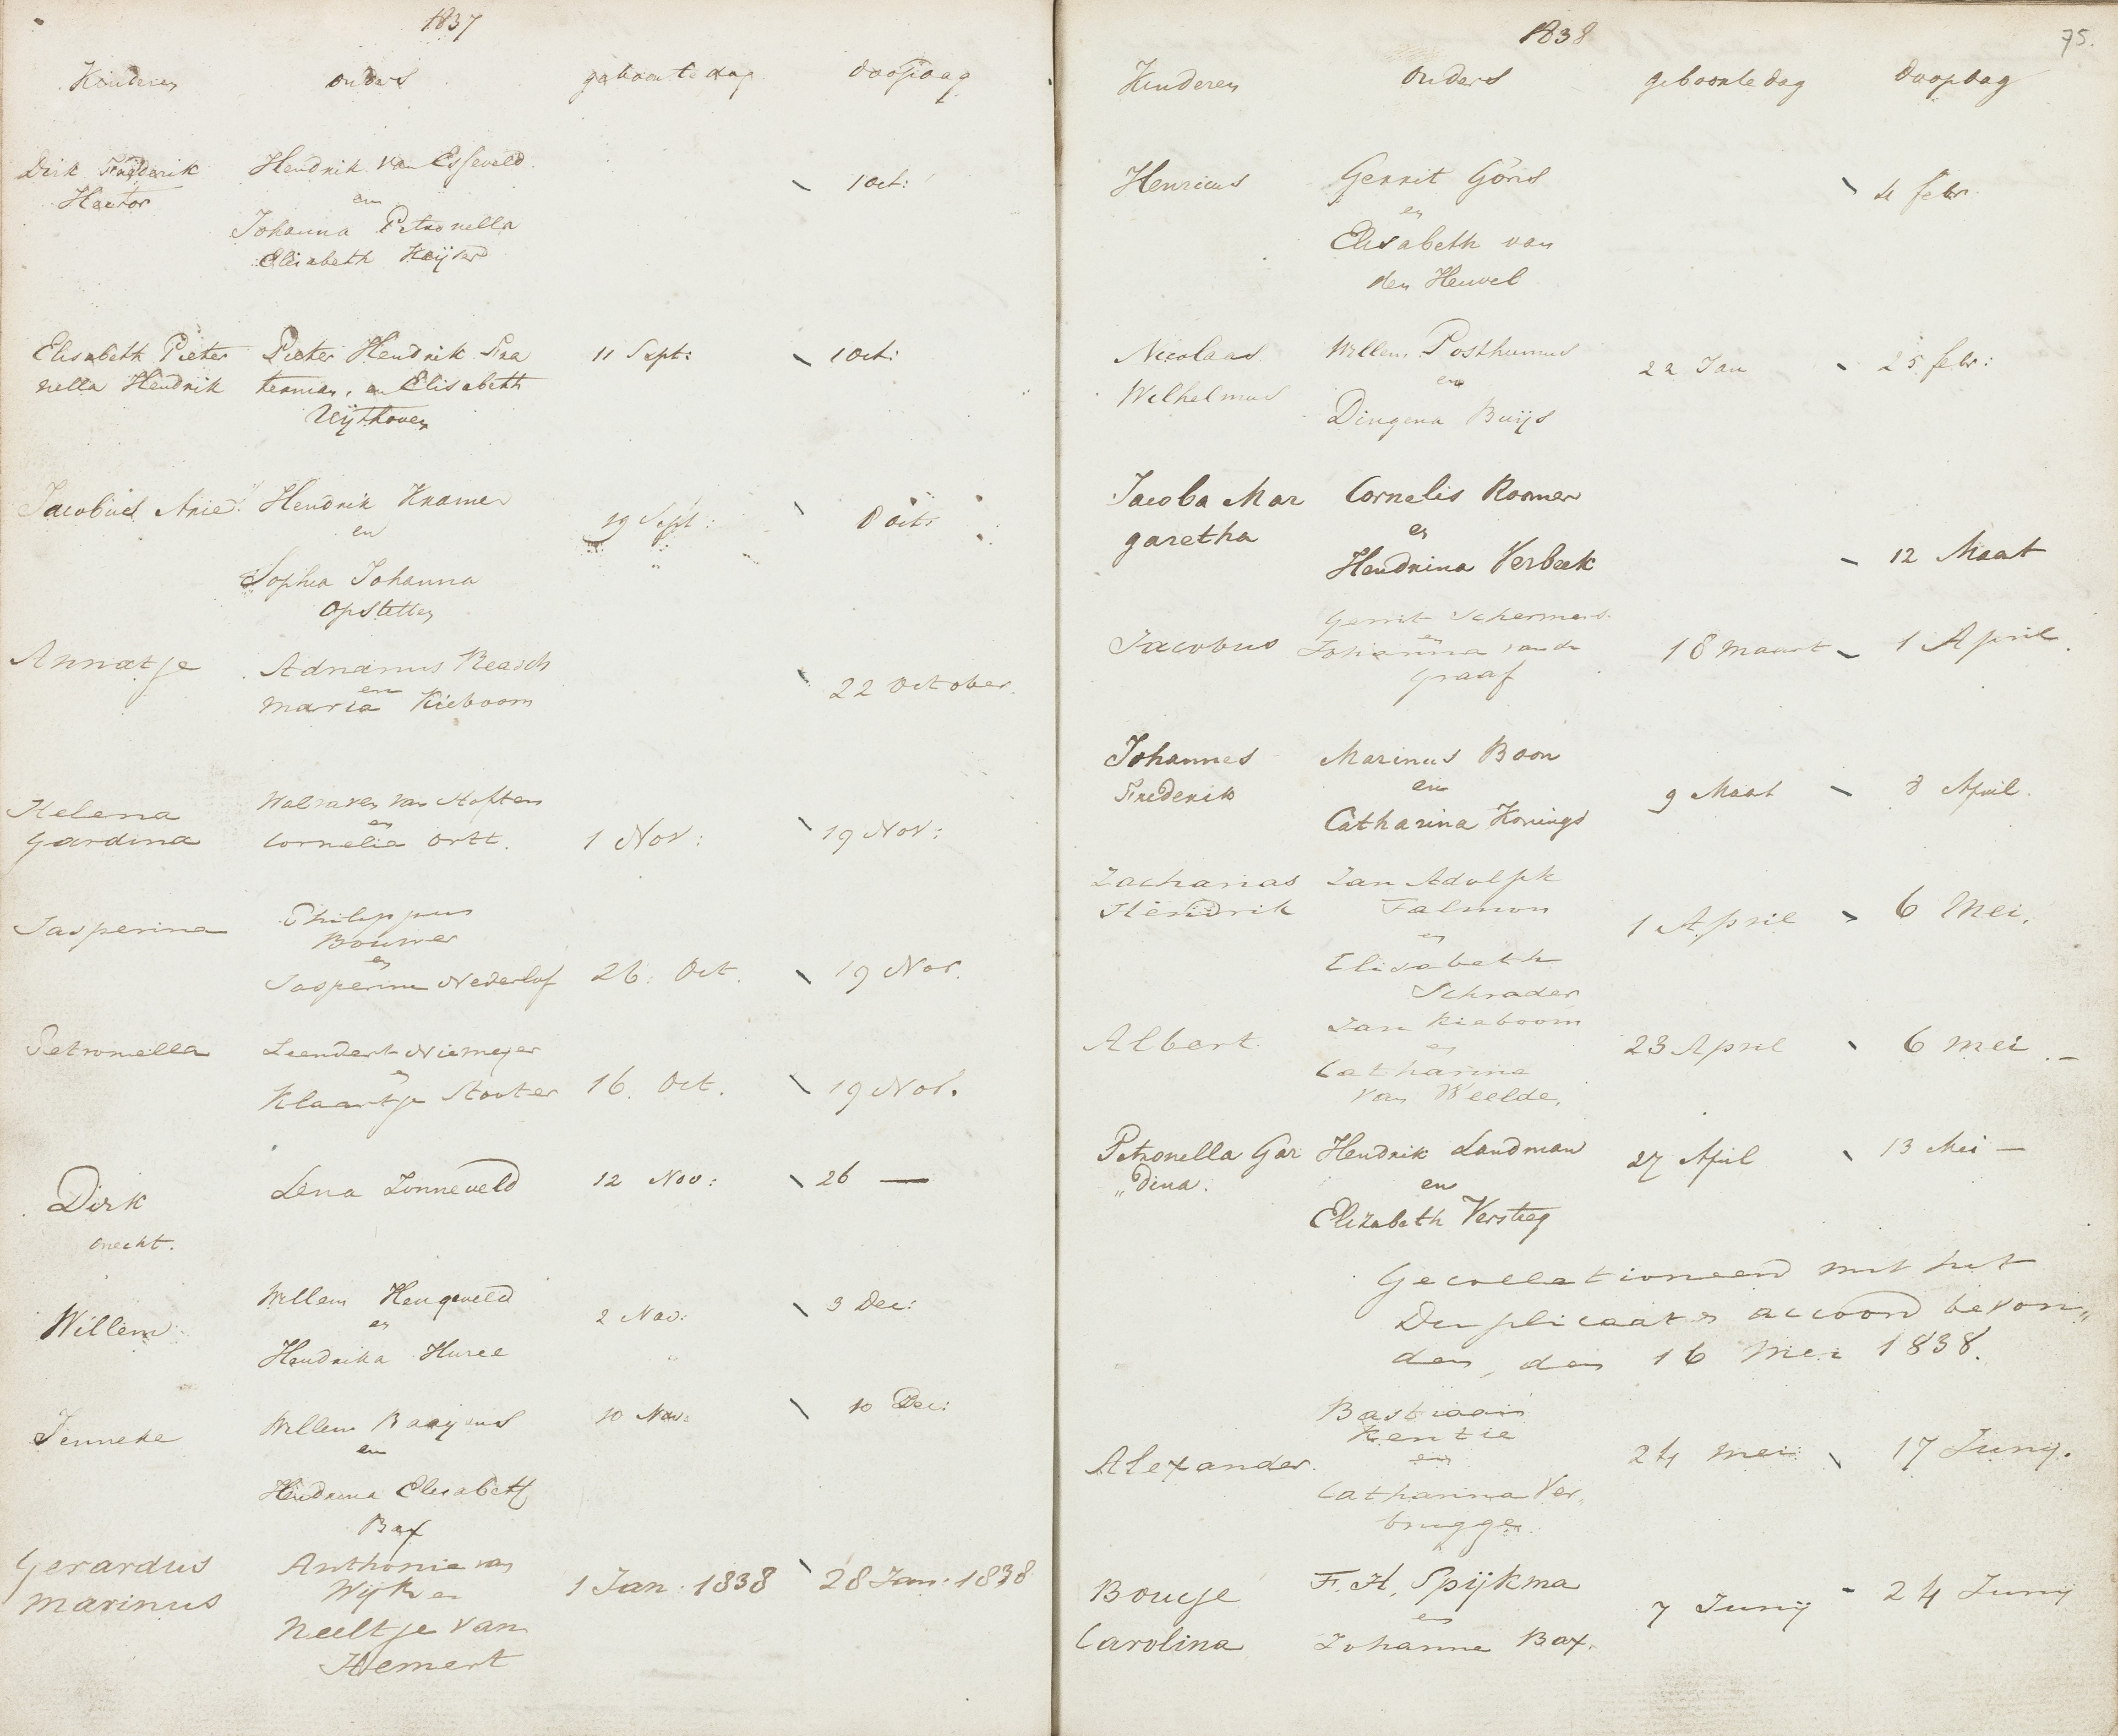 1837
Kinderen ouders geboortedag doopdag
Dirk Frederik Hendrik van Esseveld
Hector en 1 Oct:
Johanna Petronella
Elisabeth Keijser
Elisabeth Pieter Pieter Hendrik Fra 11 Sept: 1 Oct:
nella Hendrik terman, en Elisabeth
Uijthoven
Jacobus Arie Hendrik Kramer
en 19 Sept: 8 Oct:
Sophia Johanna
Opstelten
Annatje Adrianus Reasch
en 22 October.
Maria Kieboom
Helena Walraven van Haften
Gardina en
Cornelia Ortt. 1 Nov: 19 Nov:
Jasperina Philippus
Bouwer
en
Jasperina Nederlof 26. Oct. 19 Nov.
Petronella Leendert Niemeyer
en
Klaartje Stouter 16. Oct. 19 Nov.
Dirk Lena Zonneveld 12 Nov: 26 —
onecht.
Willem Willem Hengeveld 2 Nov: 3 Dec:
en
Hendrika Huree "
Jenneke Willem Baayens 10 Nov: 10 Dec:
en
Hendrina Elisabeth
Bax
Gerardus Anthonie van
Marinus Wijk en 1 Jan: 1838 28 Jan: 1838
Neeltje van
Hemert
1838 75.
Kinderen ouders geboortedag doopdag
Henricus Gerrit Göns 4 febr.
en
Elisabeth van
den Heuvel
Nicolaas Willem Posthumus 22 Jan 25 febr:
Wilhelmus en
Dingena Buijs
Jacoba Mar Cornelis Roomer
garetha en
Hendrina Verbeek 12 Maart
Jacobus Gerrit Schermers
en 18 Maart 1 April.
Johanna van de
Graaf
Johannes Marinus Boon
Frederik en 9 Maart 8 April.
Catharina Konings
Zacharias Jan Adolph
Hendrik Falmon 1 April 6 Mei.
en
Elisabeth
Schrader
Albert Jan Kieboom 23 April 6 Mei.—
en
Catharina
van Weelde.
Petronella Gar Hendrik Landman 27 April 13 Mei —
"dina. en
Elizabeth Versteeg
Gecollationeerd met het
Duplicaat en accoord bevon„
den, den 16 Mei 1838.
Bastiaan
Kentie
Alexander. en 24 Mei 17 Junij.
Catharina Ver„
brugge.
Boutje F. H. Spijkma 7 Junij 24 Junij
en
Carolina Johanna Bax.